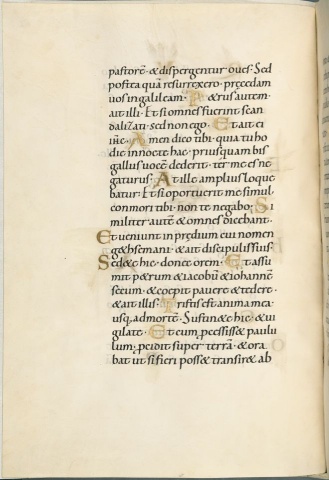 pastorē· & dispergentur oves· Sed
postea quā resurrexero· precedam
vos in galileam· P&rus autem·
ait illi· Et si omnes fuerint scan
dalizati· sed non ego· Et ait ei
ihē· Amen dico tibi· quia tu ho
die in nocte hac· priusquam bis
gallus vocem dederit· ter me es ne
gaturus· At ille amplius loque
batur· Et si oportuerit me simul
conmori tibi· non te negabo· Si
militer autē & omnes dicebant·
Et veniunt in predium cui nomen
g&hsemani· & ait discipulis suis·
Sed&e hic· donec orem· Et assu
mit p&rum & iacobū & iohannē
secum· & coepit pavere & tedere·
& ait illis· Tristis est anima mea·
usq; ad mortē· Sustin&e hic· & vi
gilate· Et cum precessiss& paulu
lum· procidit super terrā· & ora
bat ut si fieri poss& transir& ab